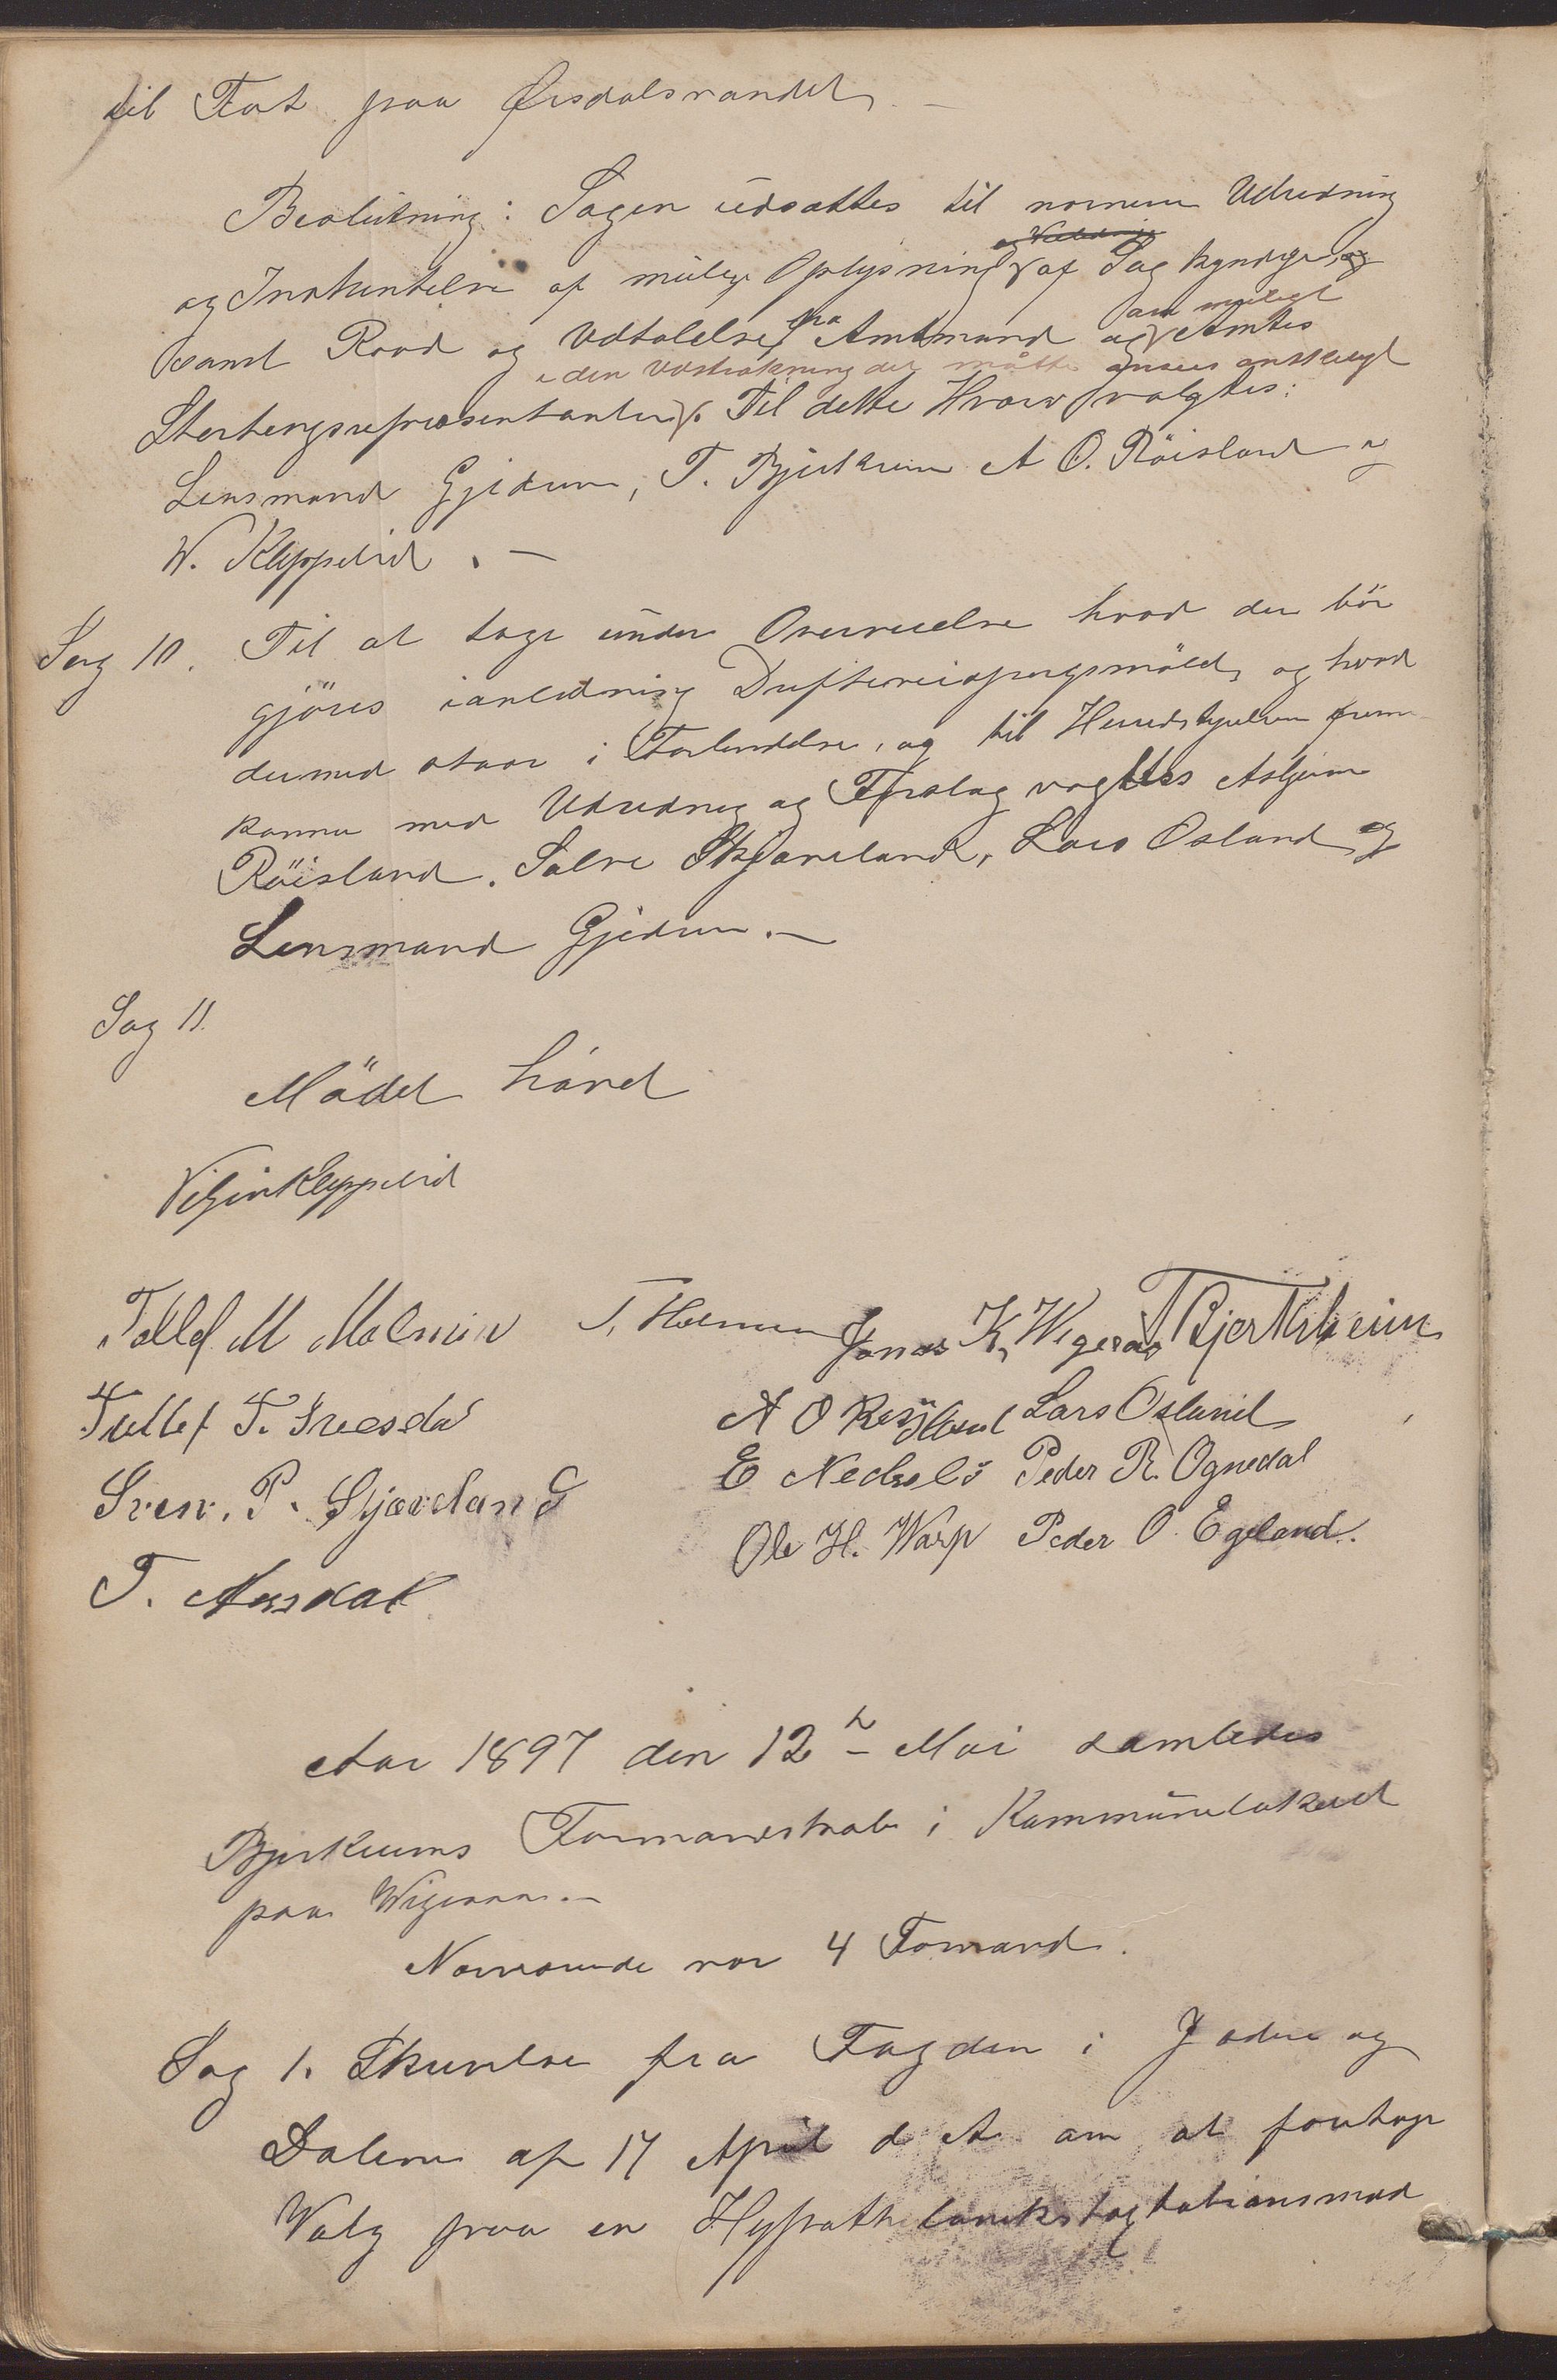 til Fart paa Ørsdalsvandet. —
Beslutning: Sagen udsættes til nærmere Udredning
og Indhentelse af mulige Oplysning af Sagkyndige
samt Raad og Udtalelse fra Amtmand og om muligt Amtes
i den Udstrækning det måtte ansees ønskeligt
Stortingsrepræsentanter. Til dette Hverv valgtes:
Lensmand Gjedrem, T. Bjerkreim A O. Röisland og
W. Kleppelid. —
Sag 10. Til at tage under Overveielse hvad der bör
gjöres ianledning Drifteveispörgsmålet, og hvad
dermed staar i Forbindelse, og til Herredstyrelsen frem-
komme med Udredning og Forslag valgtes Asbjörn
Röisland. Salve Skjæveland, Lars Osland og
Lensmand Gjedrem. —
Sag 11.
Mödet hævet
Kleppelid
Tollef M Malmin T. Jonas K, Wigeraa T Bjerkrheim
Tollef T. A O Lars Osland
Sven. P. Skjæveland E Nedrebö Peder R. Ognedal
Ole H. Warp Peder O. Egeland.
T.
Aar 1897 den 12te Mai samledes
Bjerkreims Formandskab i Kommunelokalet
paa Wigeraa. —
Nærværende var 4 Formænd.
Sag 1. Skrivelse fra Fogden i Jæderen og
Dalerne af 17 April d A. om at foretage
Valg paa en Hypothekbankstaxtationsmand